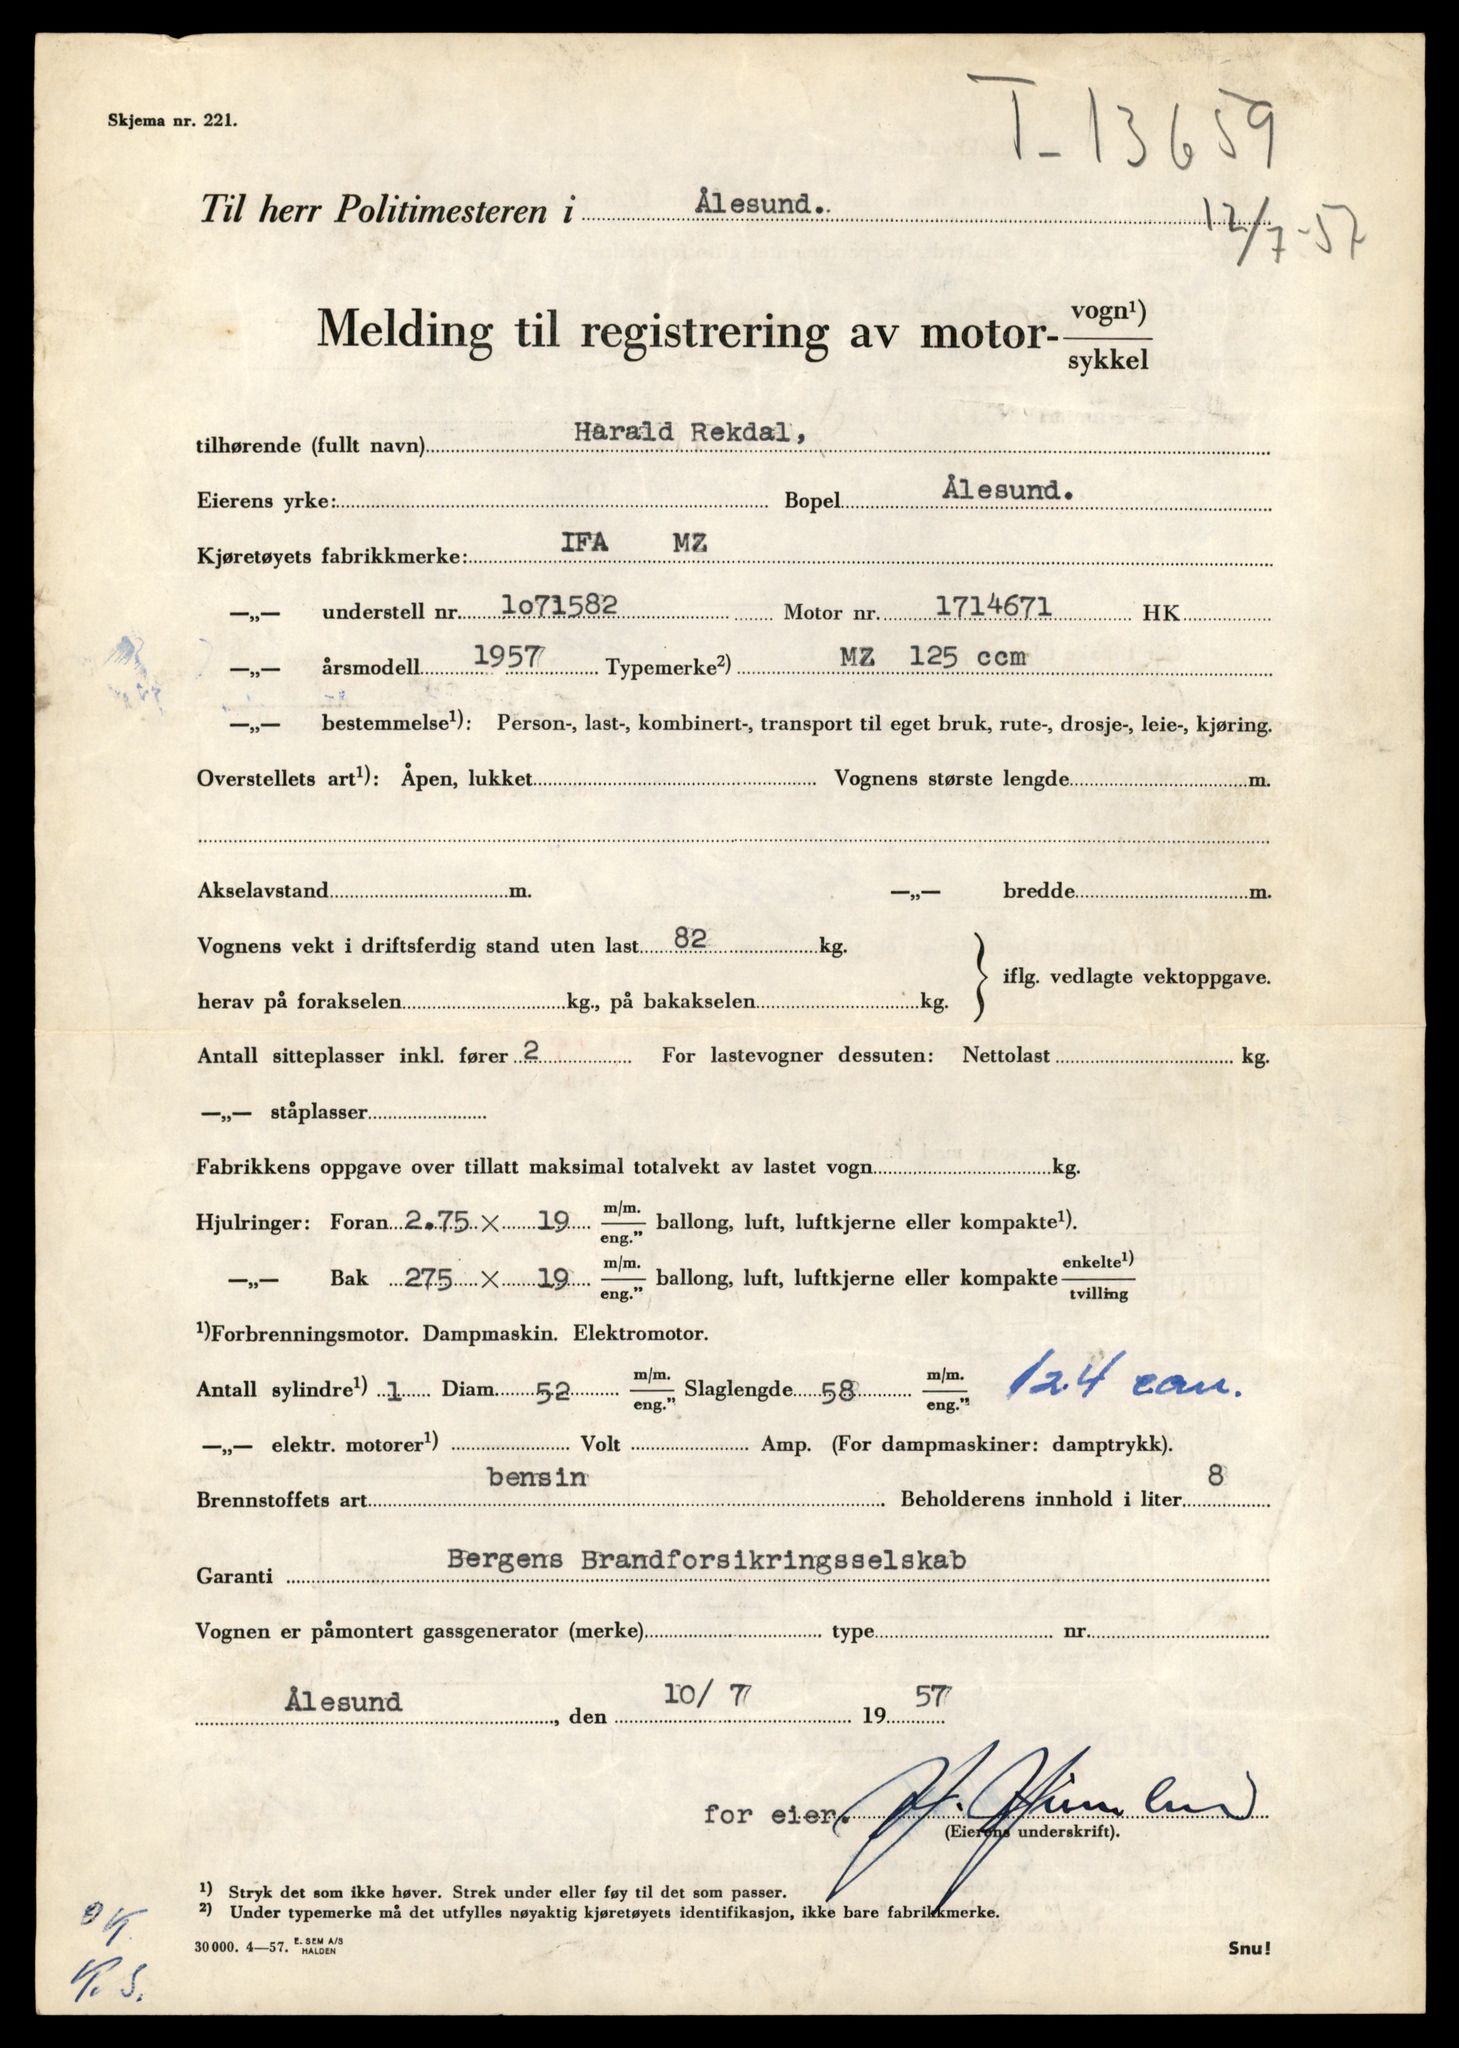 T-13659
Skjema nr. 221.
Til herr Politimesteren i Ålesund.
12/7-57
Melding til registrering av motor- vogn¹) / sykkel
tilhørende (fullt navn) Harald Rekdal,
Eierens yrke: Bopel Ålesund.
Kjøretøyets fabrikkmerke: IFA MZ
—„— understell nr. 1o71582 Motor nr. 1714671 HK
—„— årsmodell 1957 Typemerke²) MZ 125 ccm
—„— bestemmelse¹): Person-, last-, kombinert-, transport til eget bruk, rute-, drosje-, leie-, kjøring.
Overstellets art¹): Åpen, lukket Vognens største lengde m.
Akselavstand m. —„— bredde m.
Vognens vekt i driftsferdig stand uten last 82 kg.
iflg. vedlagte vektoppgave.
herav på forakselen kg., på bakakselen kg.
Antall sitteplasser inkl. fører 2 For lastevogner dessuten: Nettolast kg.
—„— ståplasser
Fabrikkens oppgave over tillatt maksimal totalvekt av lastet vogn kg.
Hjulringer: Foran 2.75 × 19 m/m. / eng.” ballong, luft, luftkjerne eller kompakte¹).
—„— Bak 275 × 19 m/m. / eng.” ballong, luft, luftkjerne eller kompakte enkelte¹) / tvilling
¹)Forbrenningsmotor. Dampmaskin. Elektromotor.
Antall sylindre¹) 1 Diam. 52 m/m. / eng.” Slaglengde 58 m/m. / eng.” 124
—„— elektr. motorer¹) Volt Amp. (For dampmaskiner: damptrykk).
Brennstoffets art bensin Beholderens innhold i liter 8
Garanti Bergens Brandforsikringsselskab
Vognen er påmontert gassgenerator (merke) type nr.
Ålesund, den 10/7 19 57
for eier.
(Eierens underskrift).
¹) Stryk det som ikke høver. Strek under eller føy til det som passer.
²) Under typemerke må det utfylles nøyaktig kjøretøyets identifikasjon, ikke bare fabrikkmerke.
OK.
K. S.
30 000. 4—57. E. SEM A/S HALDEN
Snu!